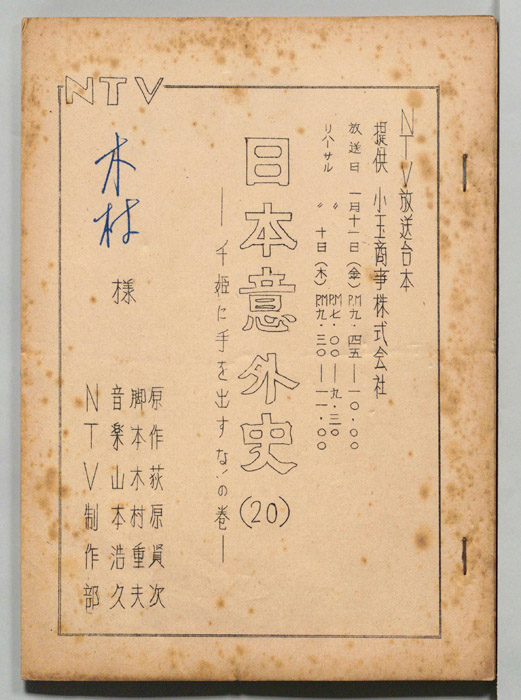 NTV
NTV放送台本
提供 小玉商事株式会社
放送日 一月十一日(金)P.M九・四五―一〇・〇〇
P.M七・〇〇―九・三〇
リハーサル 〃 十日(木)P.M九・三〇―一一・〇〇
日本意外史(20)
―千姫に手を出すな!の巻―
木村
様
原作 荻原賢次
脚本 木村重夫
音楽 山本浩久
NTV制作部